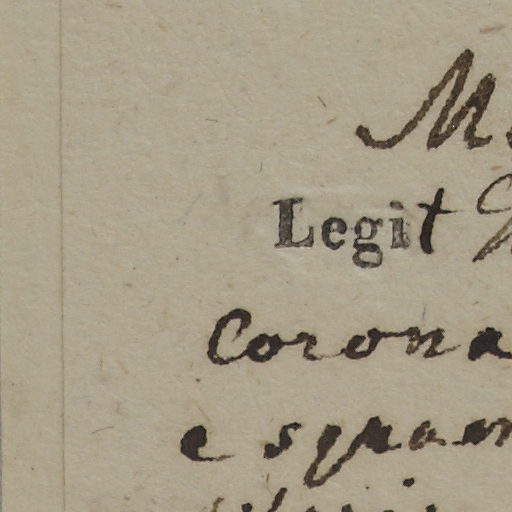 M
Legit
Corona
e squam